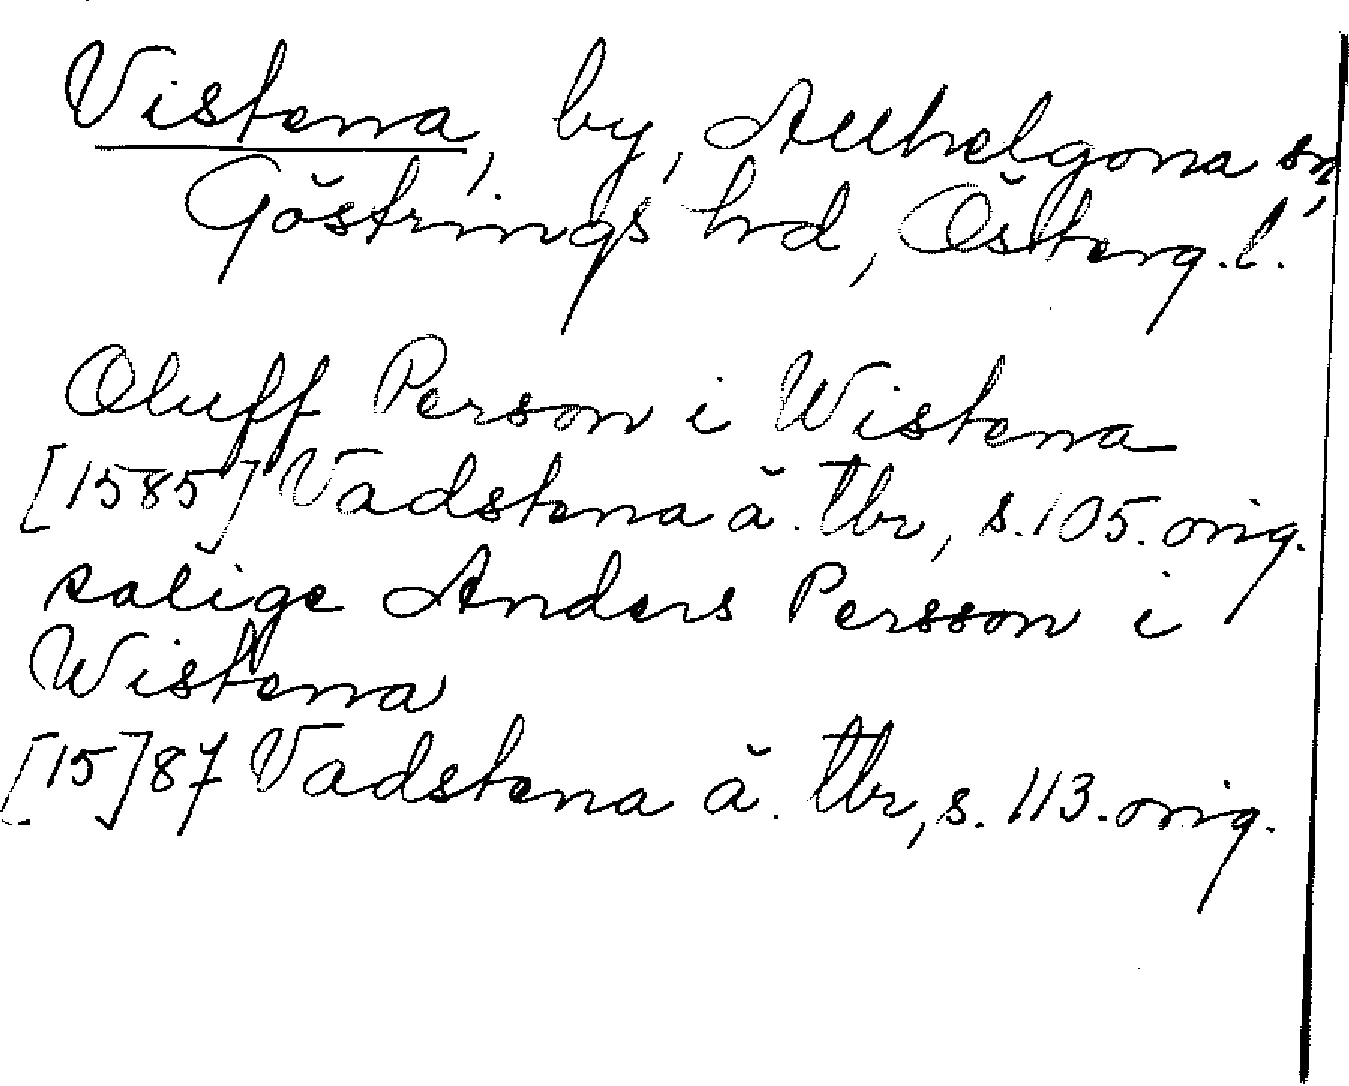 Vistena, by, Allhelgona sn,
Göstrings hrd, Österg. l.
Oluff Person i Wistena
[1585] Vadstena ä. tbr, s. 105. orig.
salige Anders Persson i
Wistena
[15]87 Vadstena ä. tbr, s. 113. orig.